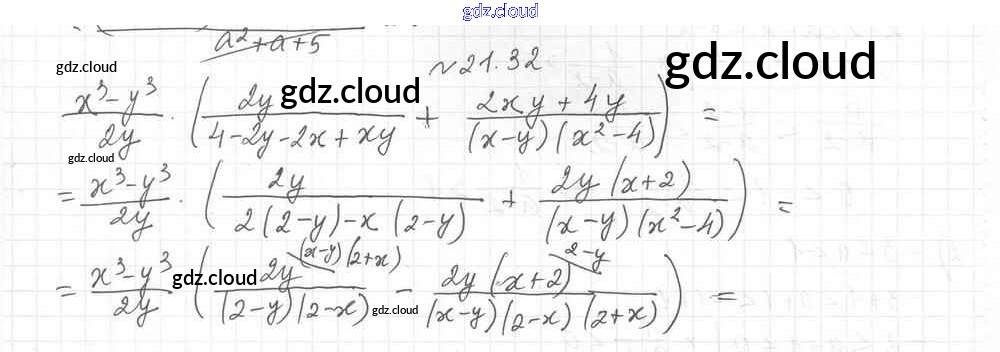 gdz.cloud
a²+a+5
№21.32
gdz.cloud gdz.cloud gdz.cloud
(x³-y³)/(2y) · ( (2y)/(4-2y-2x+xy) + (2xy+4y)/((x-y)(x²-4)) ) =
gdz.cloud
= (x³-y³)/(2y) · ( (2y)/(2(2-y)-x(2-y)) + (2y(x+2))/((x-y)(x²-4)) ) =
= (x³-y³)/(2y) · ( (2y)/((2-y)(2-x)) (x-y)(2+x) - (2y(x+2))/((x-y)(2-x)(2+x)) 2-y ) =
gdz.cloud gdz.cloud